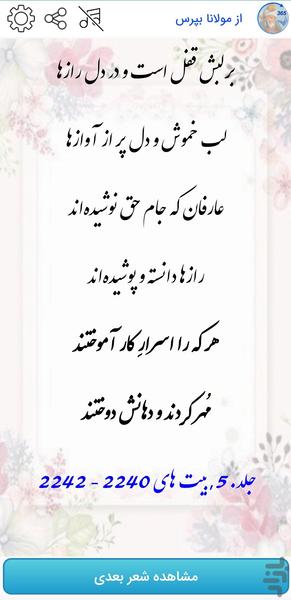 از مولانا بپرس
365
بر لبش قفل است و در دل رازها
لب خموش و دل پر از آوازها
عارفان که جام حق نوشیده‌اند
رازها دانسته و پوشیده‌اند
هر که را اسرارِ کار آموختند
مُهر کردند و دهانش دوختند
جلد 5, بیت های 2240 - 2242
مشاهده شعر بعدی
بازار